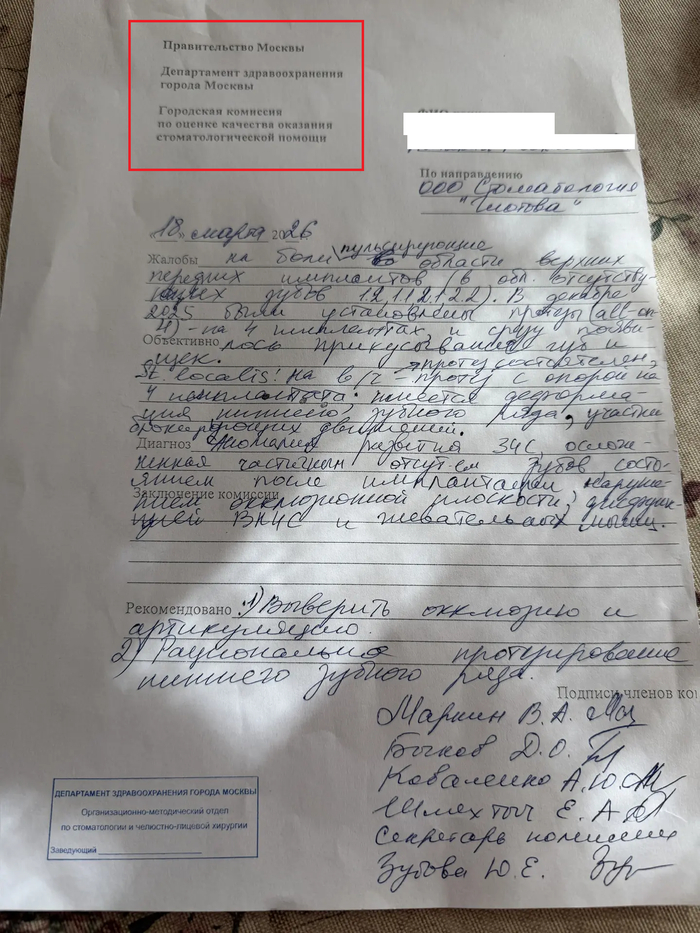 Правительство Москвы
Департамент здравоохранения
города Москвы
Городская комиссия
по оценке качества оказания
стоматологической помощи
По направлению
ООО Стоматология
"Глотова"
«18» марта 2026
Жалобы на боли пульсирующие в области верхних
передних имплантов (в обл. отсутству-
ющих зубов 1.2 1.1 2.1 2.2). В декабре
2025 были установлены протезы (all-on-
4) - на 4 имплантах, и сразу появи-
Объективно лось прикусывание губ и
щек.
St. localis: на в/ч - протез состоятелен, с опорой на
4 импланта имеется деформа-
ция нижнего зубного ряда, участки
блокирующих движений.
Диагноз Аномалия развития ЗЧС ослож-
ненная частичным отсут-ем зубов, состо-
янием после имплантации, наруше-
Заключение комиссии
нием окклюзионной плоскости, дисфунк-
цией ВНЧС и жевательных мышц.
Рекомендовано: 1) Выверить окклюзию и
артикуляцию.
2) Рациональное протезирование
нижнего зубного ряда.
Подписи членов ко
Маркин В.А.
Быков Д.О.
Коваленко А.Ю.
Шлехтыч Е.А.
Секретарь комиссии
Зубова Ю.Е.
ДЕПАРТАМЕНТ ЗДРАВООХРАНЕНИЯ ГОРОДА МОСКВЫ
Организационно-методический отдел
по стоматологии и челюстно-лицевой хирургии
Заведующий